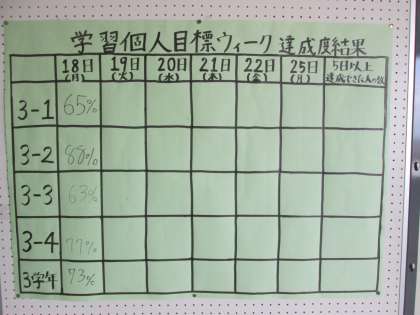 学習個人目標ウィーク 達成度結果
18日(月) 19日(火) 20日(水) 21日(木) 22日(金) 25日(月) 5日以上達成できた人の数
3-1 65%
3-2 88%
3-3 63%
3-4 77%
3学年 73%